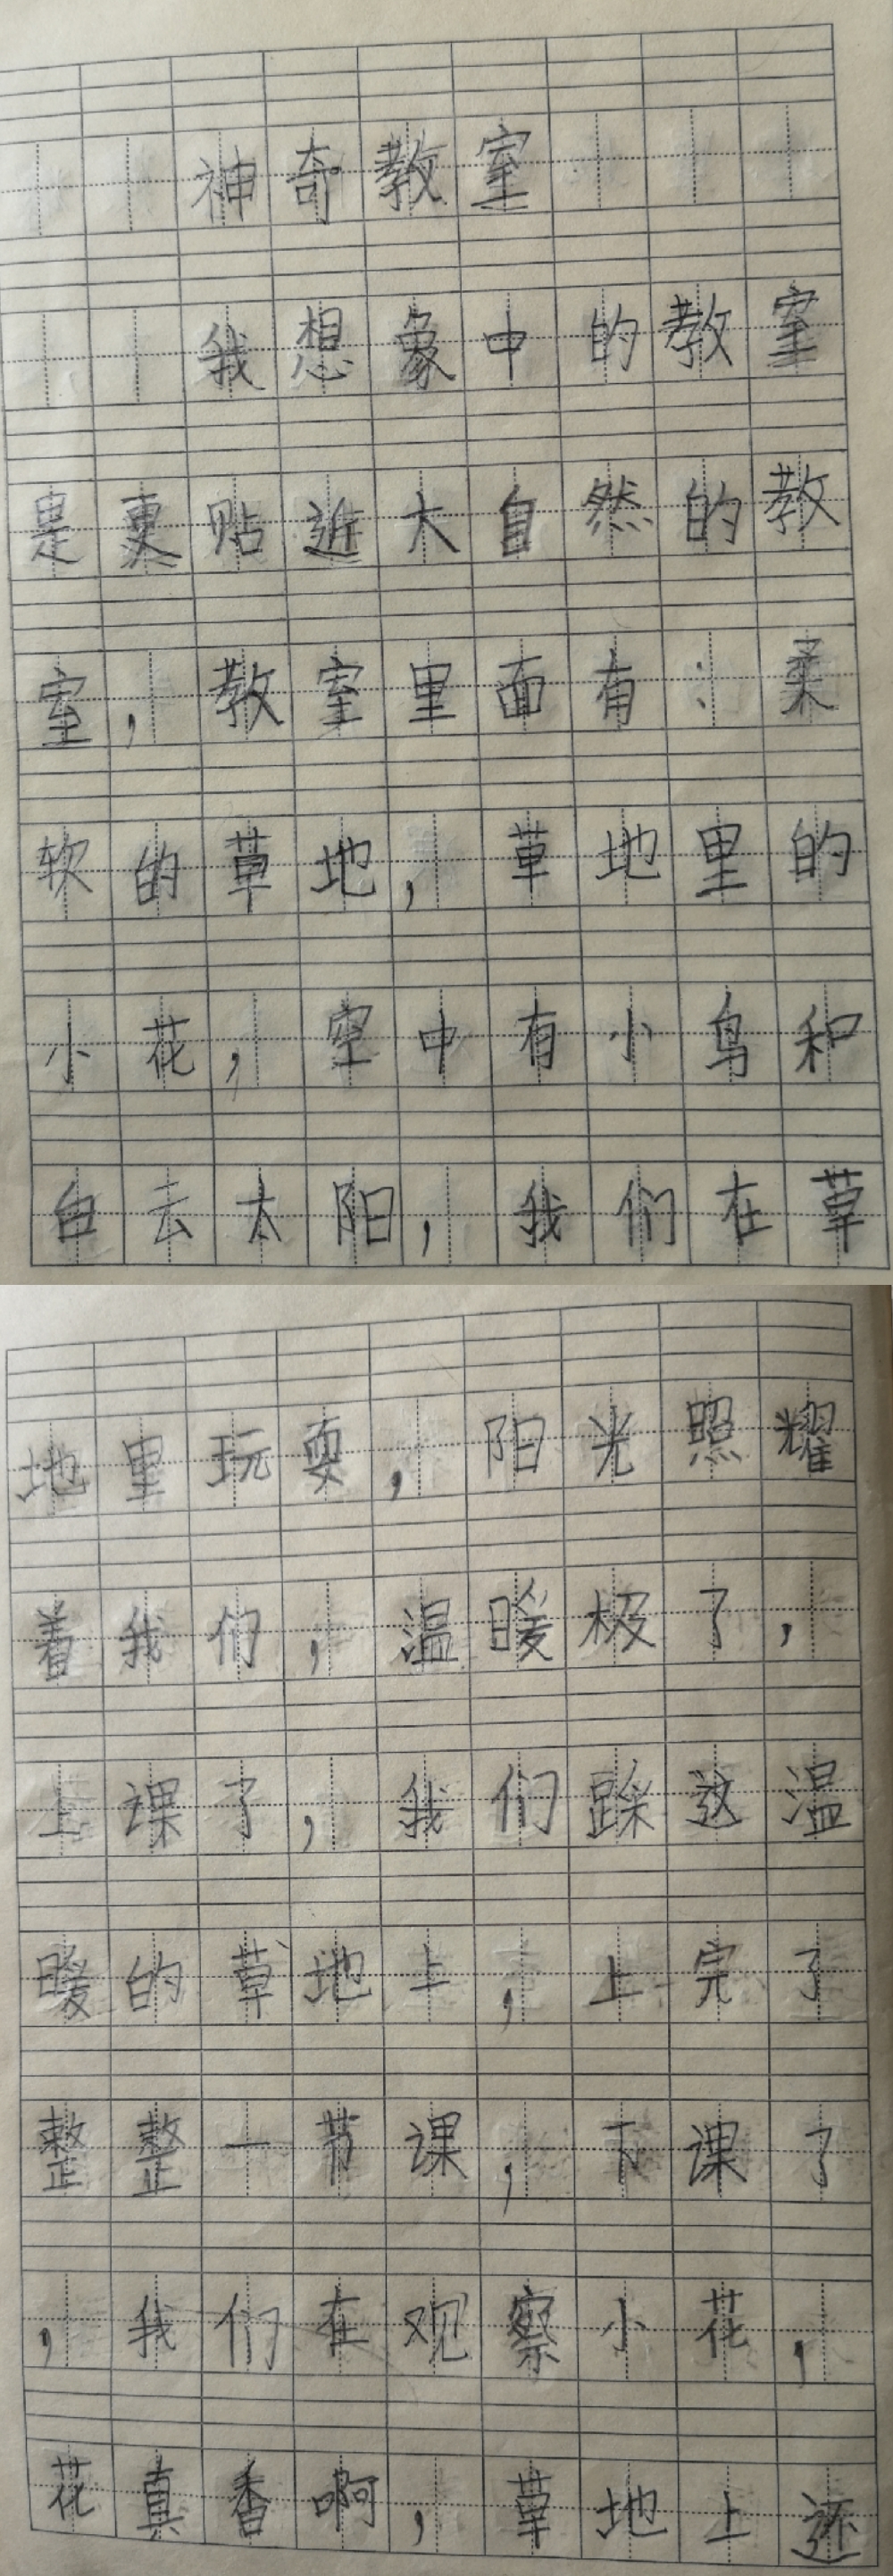 神奇教室
我想象中的教室
是更贴近大自然的教
室，教室里面有：柔
软的草地，草地里的
小花，空中有小鸟和
白云太阳，我们在草
地里玩耍，阳光照耀
着我们，温暖极了，
上课了，我们踩这温
暖的草地上，上完了
整整一节课，下课了
，我们在观察小花，
花真香啊，草地上还